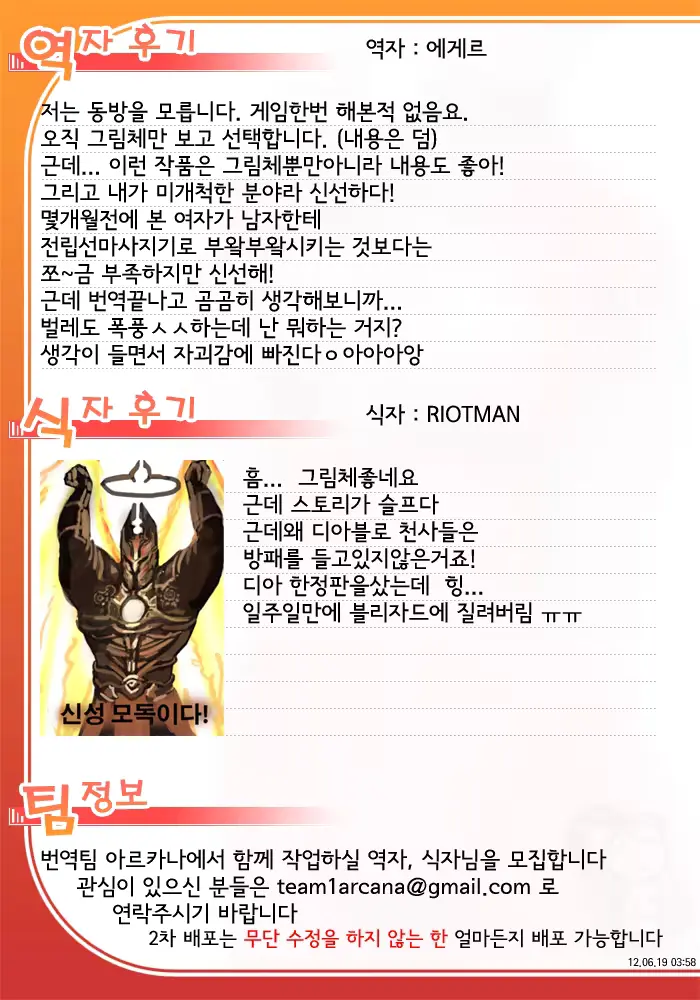 역자 후기
역자 : 에게르
저는 동방을 모릅니다. 게임한번 해본적 없음요.
오직 그림체만 보고 선택합니다. (내용은 덤)
근데... 이런 작품은 그림체뿐만아니라 내용도 좋아!
그리고 내가 미개척한 분야라 신선하다!
몇개월전에 본 여자가 남자한테
전립선마사지기로 부왘부왘시키는 것보다는
쪼~금 부족하지만 신선해!
근데 번역끝나고 곰곰히 생각해보니까...
벌레도 폭풍ㅅㅅ하는데 난 뭐하는 거지?
생각이 들면서 자괴감에 빠진다ㅇ아아아앙
식자 후기
식자 : RIOTMAN
흠... 그림체좋네요
근데 스토리가 슬프다
근데왜 디아블로 천사들은
방패를 들고있지않은거죠!
디아 한정판을샀는데 힝...
일주일만에 블리자드에 질려버림 ㅠㅠ
신성 모독이다!
팀 정보
번역팀 아르카나에서 함께 작업하실 역자, 식자님을 모집합니다
관심이 있으신 분들은 team1arcana@gmail.com 로
연락주시기 바랍니다
2차 배포는 무단 수정을 하지 않는 한 얼마든지 배포 가능합니다
12.06.19 03:58